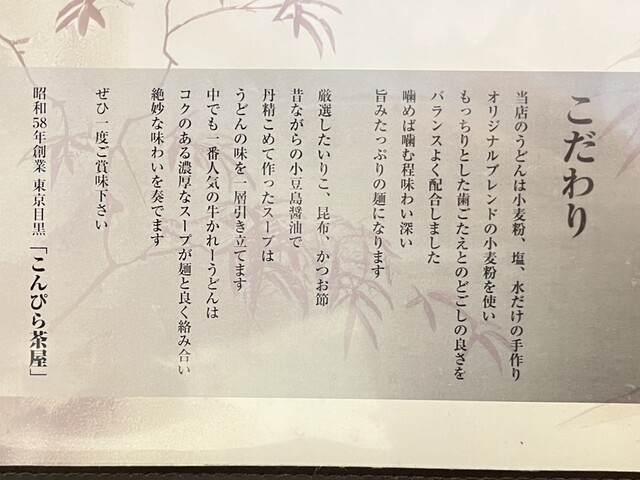 こだわり
当店のうどんは小麦粉、塩、水だけの手作り
オリジナルブレンドの小麦粉を使い
もっちりとした歯ごたえとのどごしの良さを
バランスよく配合しました
噛めば噛む程味わい深い
旨みたっぷりの麺になります
厳選したいりこ、昆布、かつお節
昔ながらの小豆島醤油で
丹精こめて作ったスープは
うどんの味を一層引き立てます
中でも一番人気の牛かれーうどんは
コクのある濃厚なスープが麺と良く絡み合い
絶妙な味わいを奏でます
ぜひ一度ご賞味下さい
昭和58年創業 東京目黒 「こんぴら茶屋」